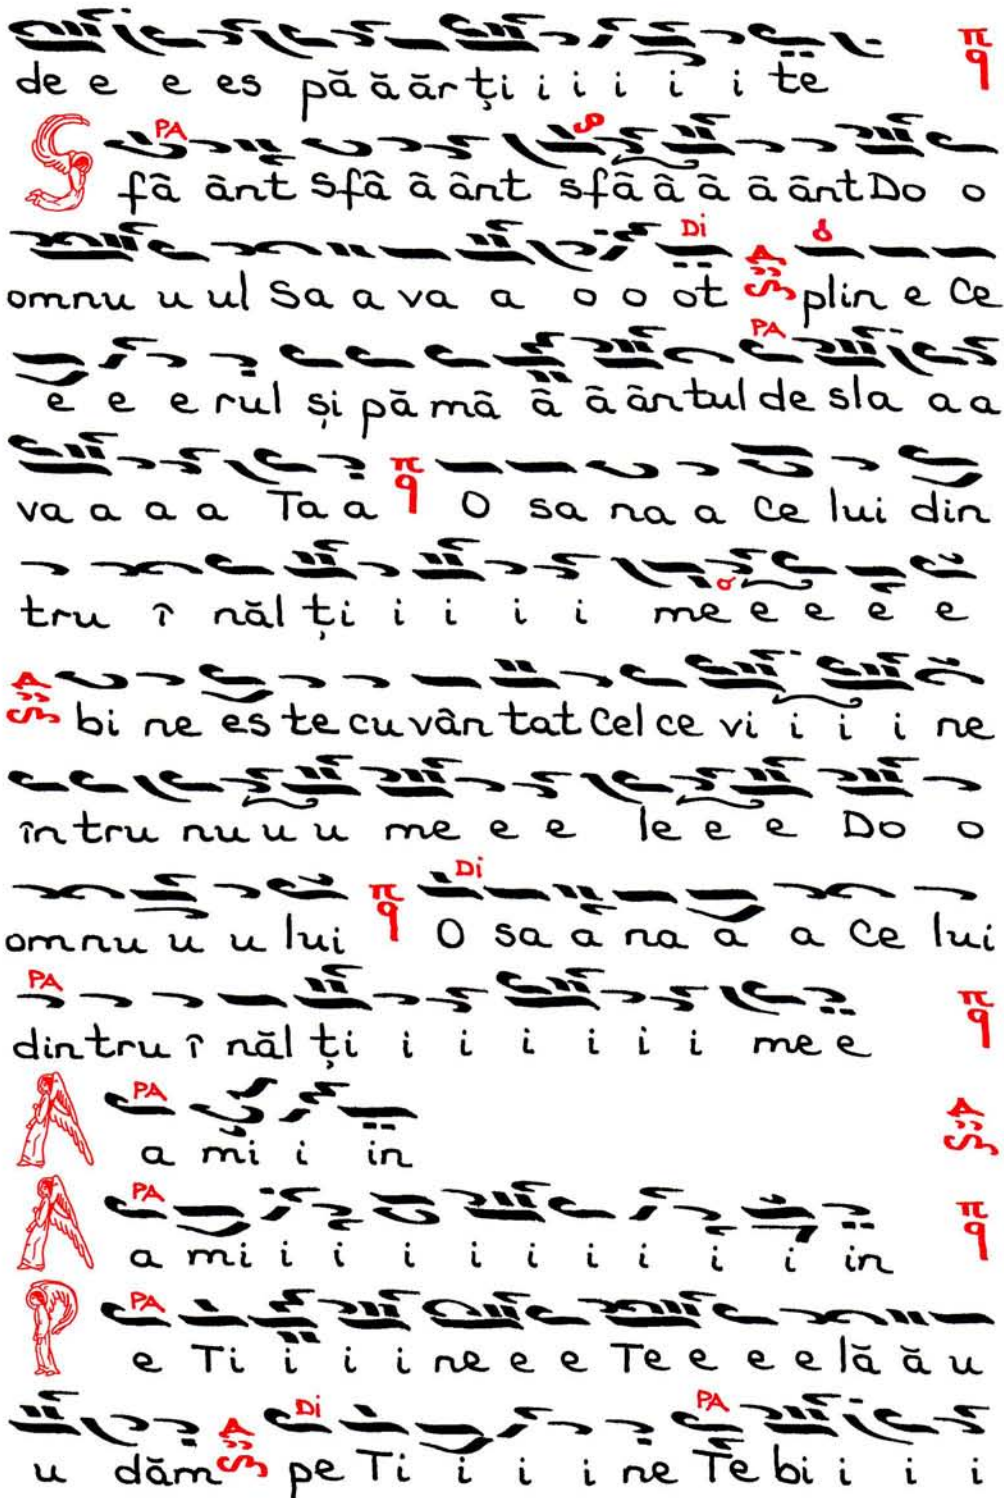 de e e es pă ă ăr ţi i i i i i te π q
PA
S fâ ânt Sfâ â ânt sfâ â â â ânt Do o
Di
omnu u ul Sa a va a o o ot plin e Ce
PA
e e e rul şi pă mâ â â ân tul de sla a a
va a a a Ta a π q O sa na a Ce lui din
tru î năl ţi i i i i me e e e e
bi ne es te cu vân tat Cel ce vi i i i ne
în tru nu u u me e e le e e Do o
Di
omnu u u lui π q O sa a na a a Ce lui
PA
din tru î năl ţi i i i i i i me e π q
PA
A a mi i in
PA
A a mi i i i i i i i i i in π q
PA
P e Ti i i i ne e e Te e e e lă ă u
Di PA
u dăm pe Ti i i i ne Te bi i i i